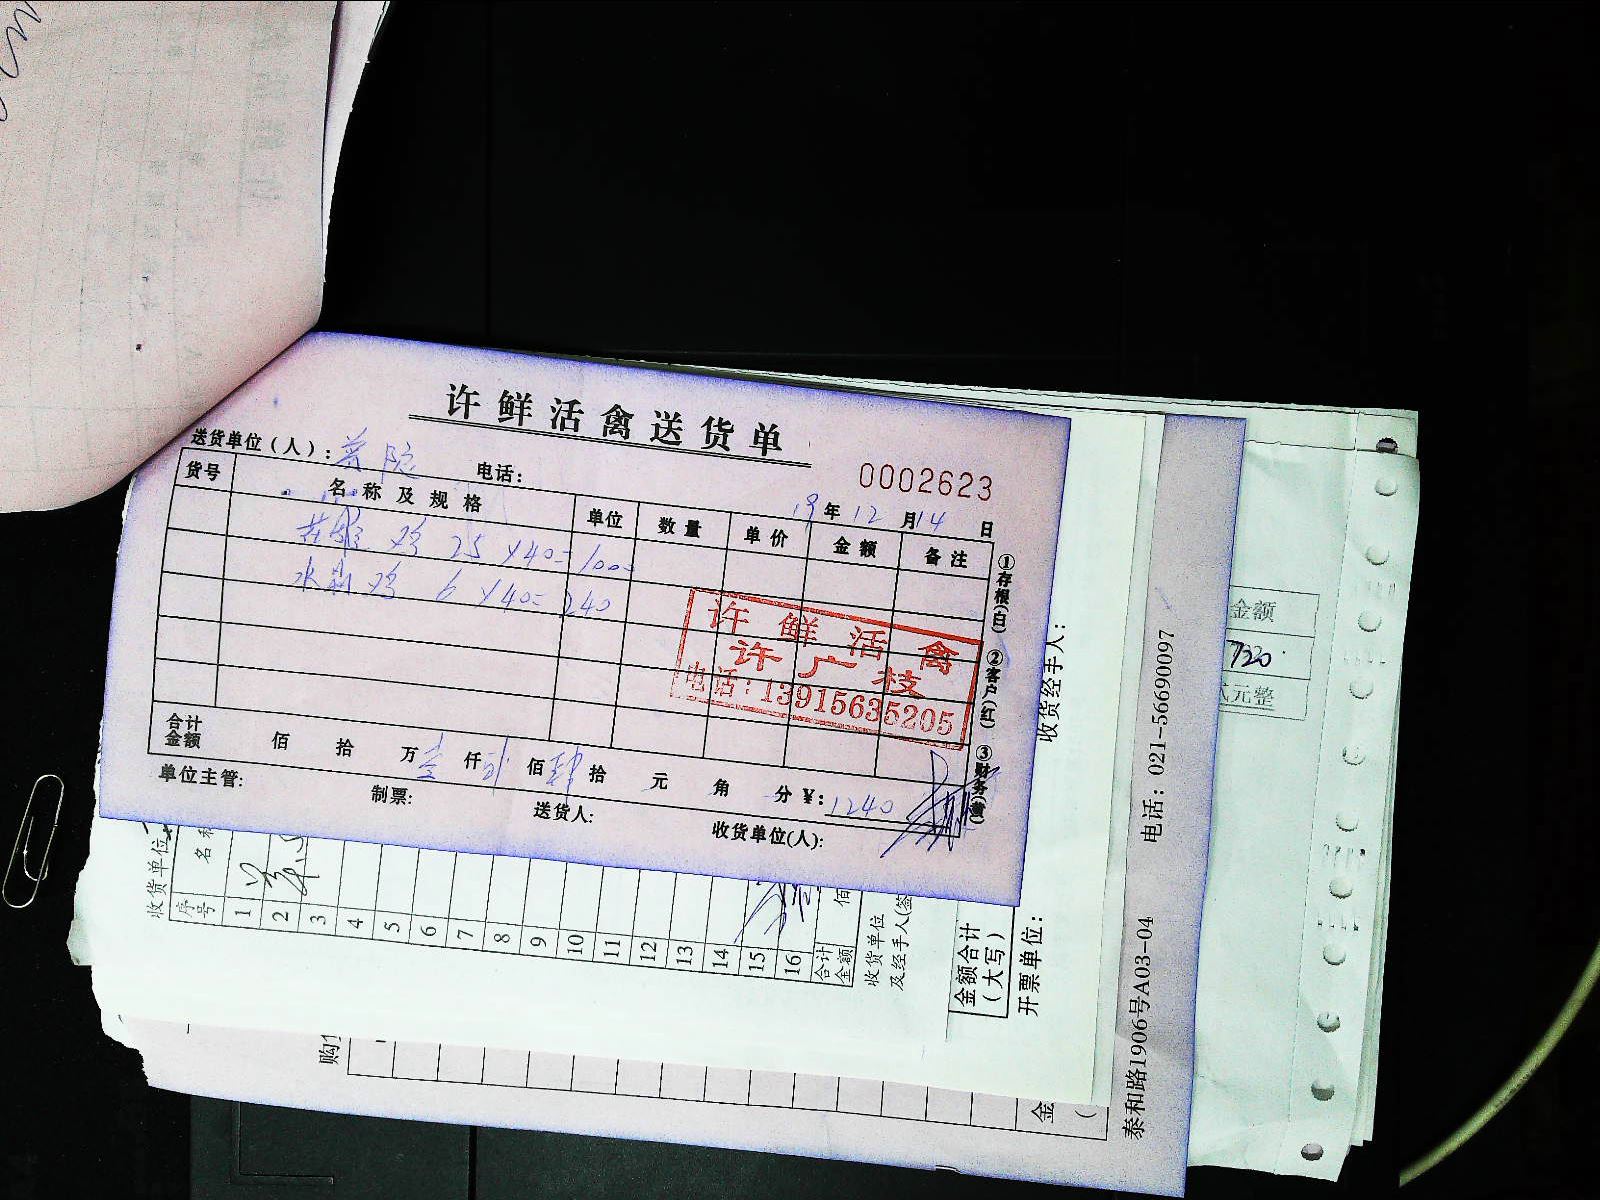 许鲜活禽送货单
0002623
送货单位(人): 电话:
19年12月14日
货号 名称及规格 单位 数量 单价 金额 备注
鸡 25×40=1000
水 鸡 6×40=240
许鲜活禽
许广枝
电话:13915635205
合计金额 佰 拾 万壹仟贰佰肆拾 元 角 分 ¥:1240
单位主管: 制票: 送货人: 收货单位(人):
①存根(白) ②客户(红) ③财务(黄)
收货单位
序号
1
2
3
4
5
6
7
8
9
10
11
12
13
14
15
16
合计金额
佰
收货单位及经手人(签
金额合计(大写)
开票单位:
收货经手人:
泰和路1906号A03-04 电话:021-56690097
金额
7320
元整